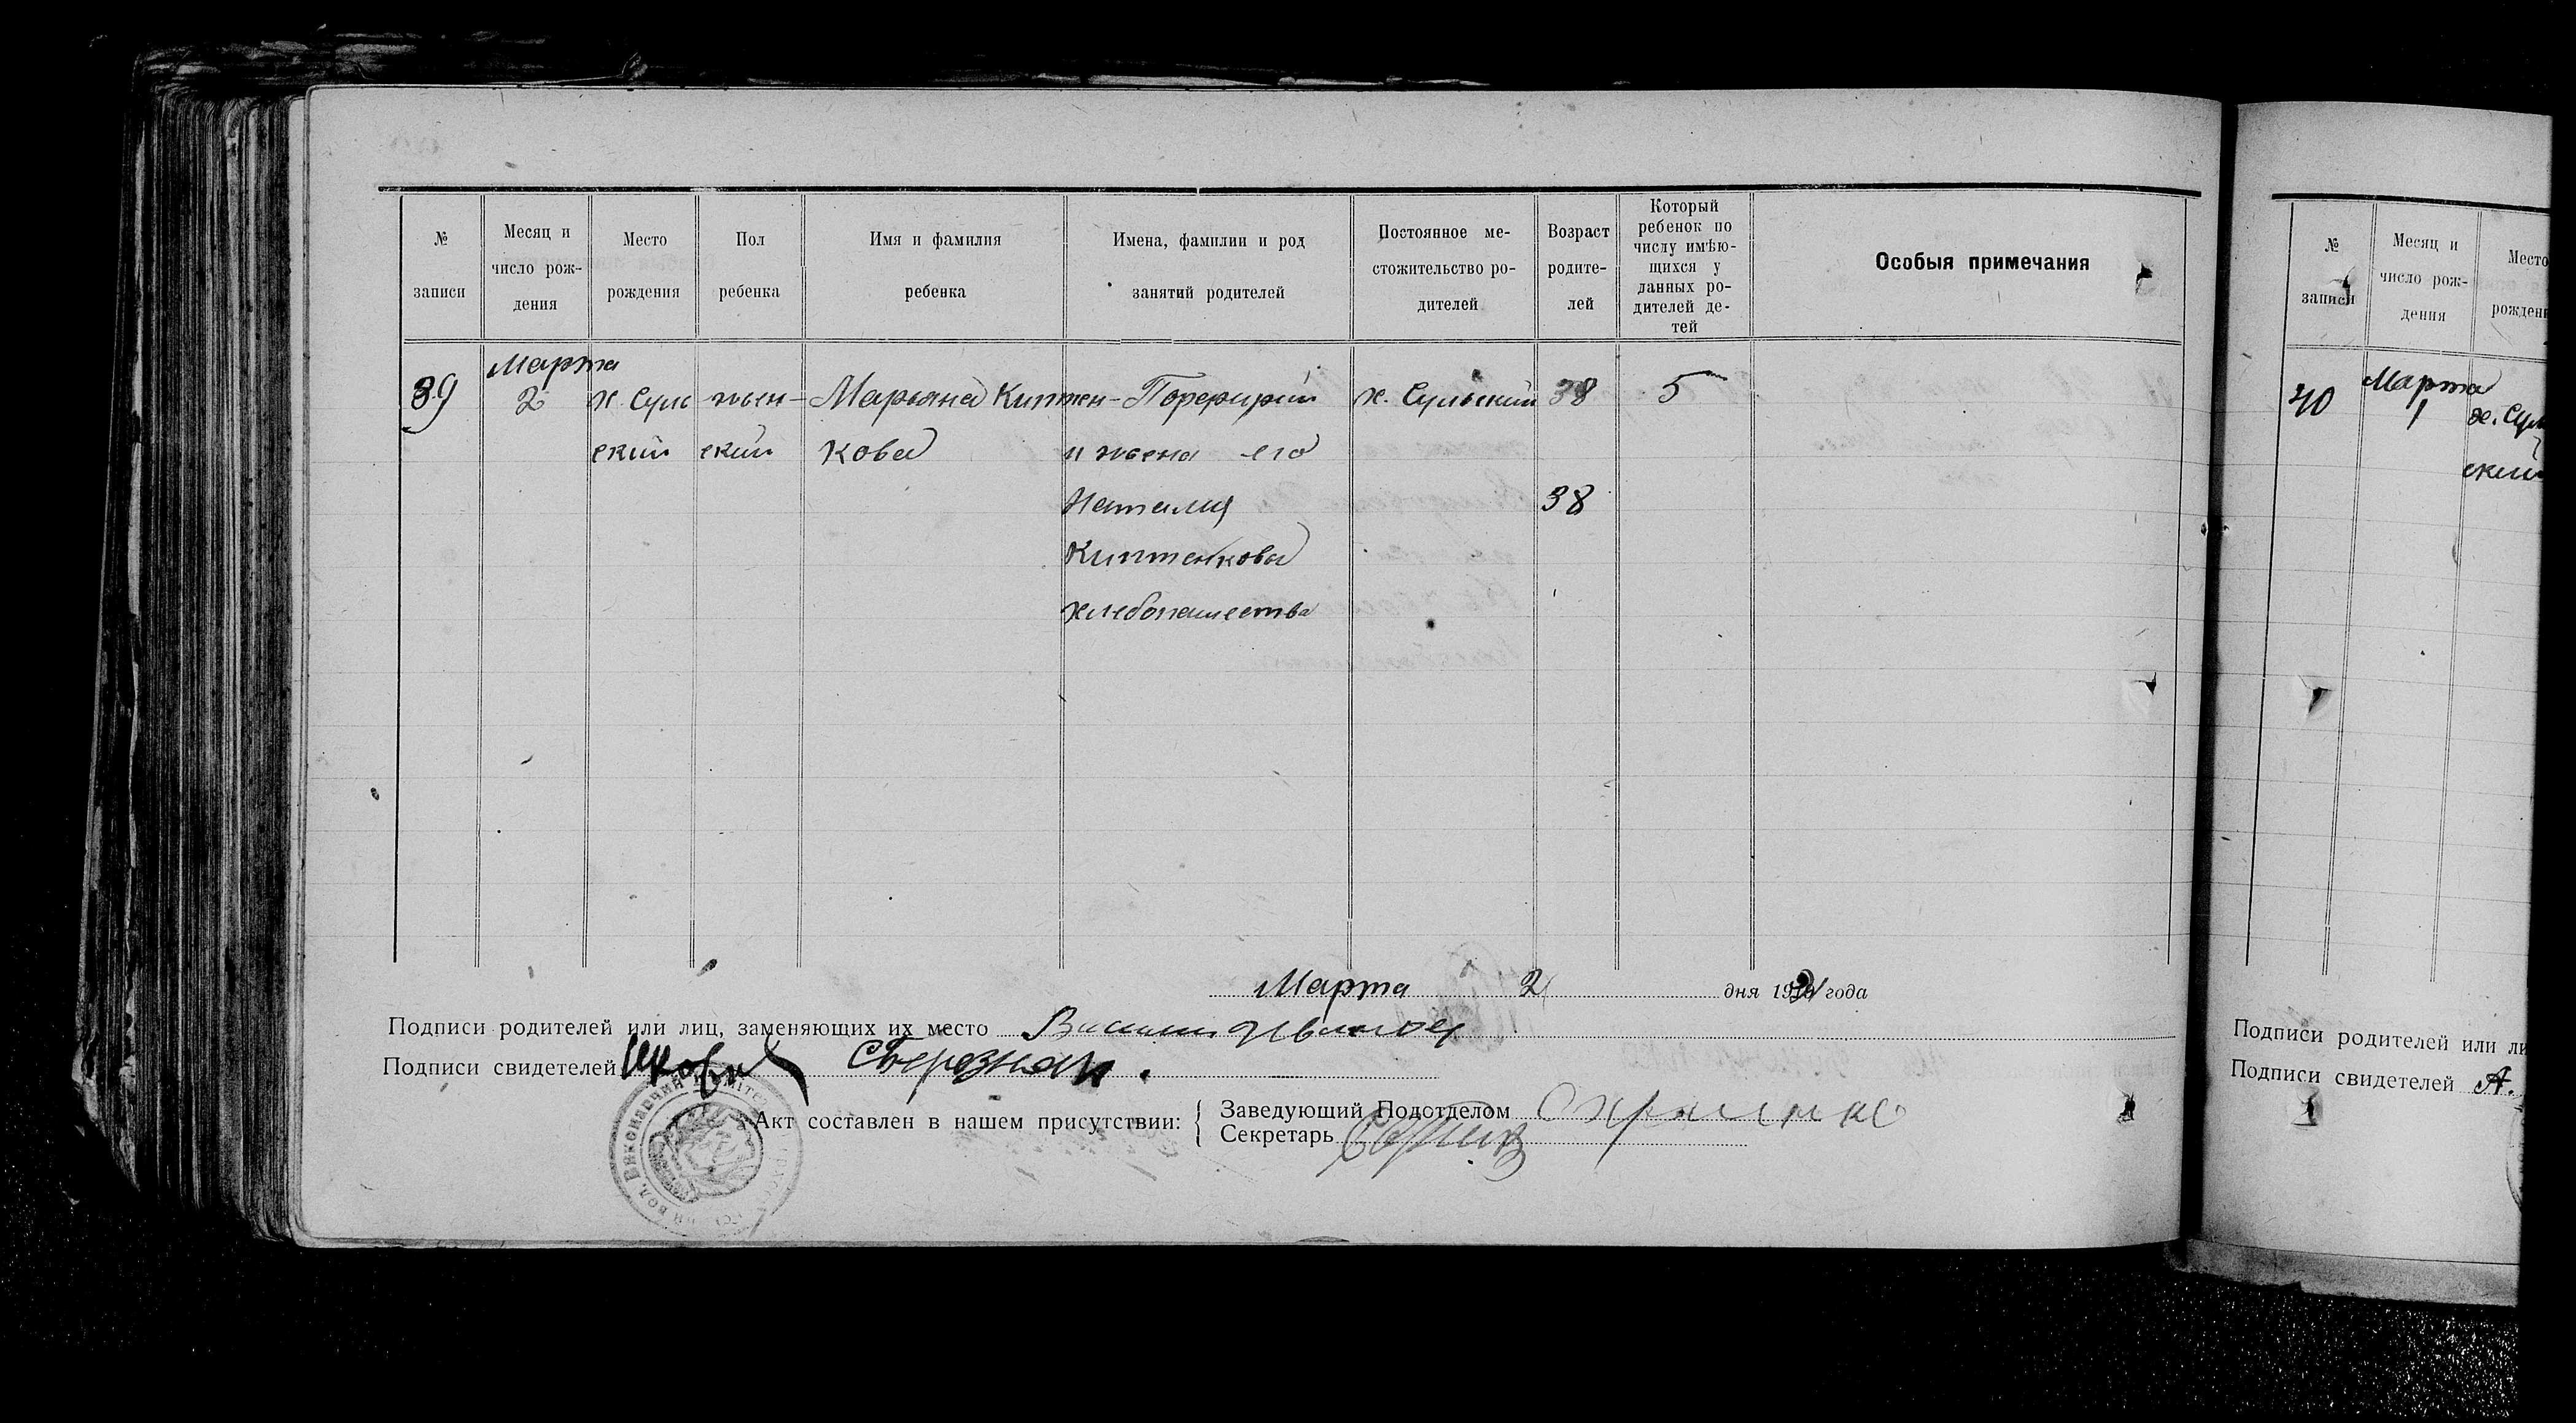 № записи
Месяц и число рож-дения
Место рождения
Пол ребенка
Имя и фамилия ребенка
Имена, фамилии и род занятий родителей
Постоянное ме-стожительство ро-дителей
Возраст родите-лей
Который ребенок по числу имѣю-щихся у данных ро-дителей де-тей
Особыя примечания
Марта
39 2 х. Суль жен- Марьяна Киптен- Порфирий х. Сульский 38 5
ский ский кова и жена его
Наталия 38
Киптенкова
хлебопашества
Марта 2 дня 1921 года
Подписи родителей или лиц, заменяющих их место
Подписи свидетелей
Акт составлен в нашем присутствии:
Заведующий Подотделом
Секретарь
№ записи
Месяц и число рож-дения
Место
Марта
40 1 х. Сул
ский
Подписи родителей или ли
Подписи свидетелей А.